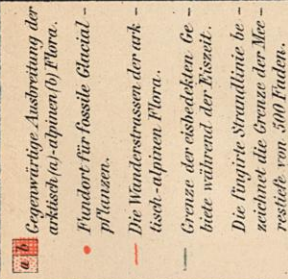 a b Gegenwärtige Ausbreitung der
arktisch (a)-alpinen (b) Flora.
Fundort für fossile Glacial-
pflanzen.
Die Wanderstrassen der ark-
tisch-alpinen Flora.
Grenze der eisbedekten Ge-
biete während der Eiszeit.
Die fingirte Strandlinie be-
zeichnet die Grenze der Mee-
restiefe von 500 Faden.